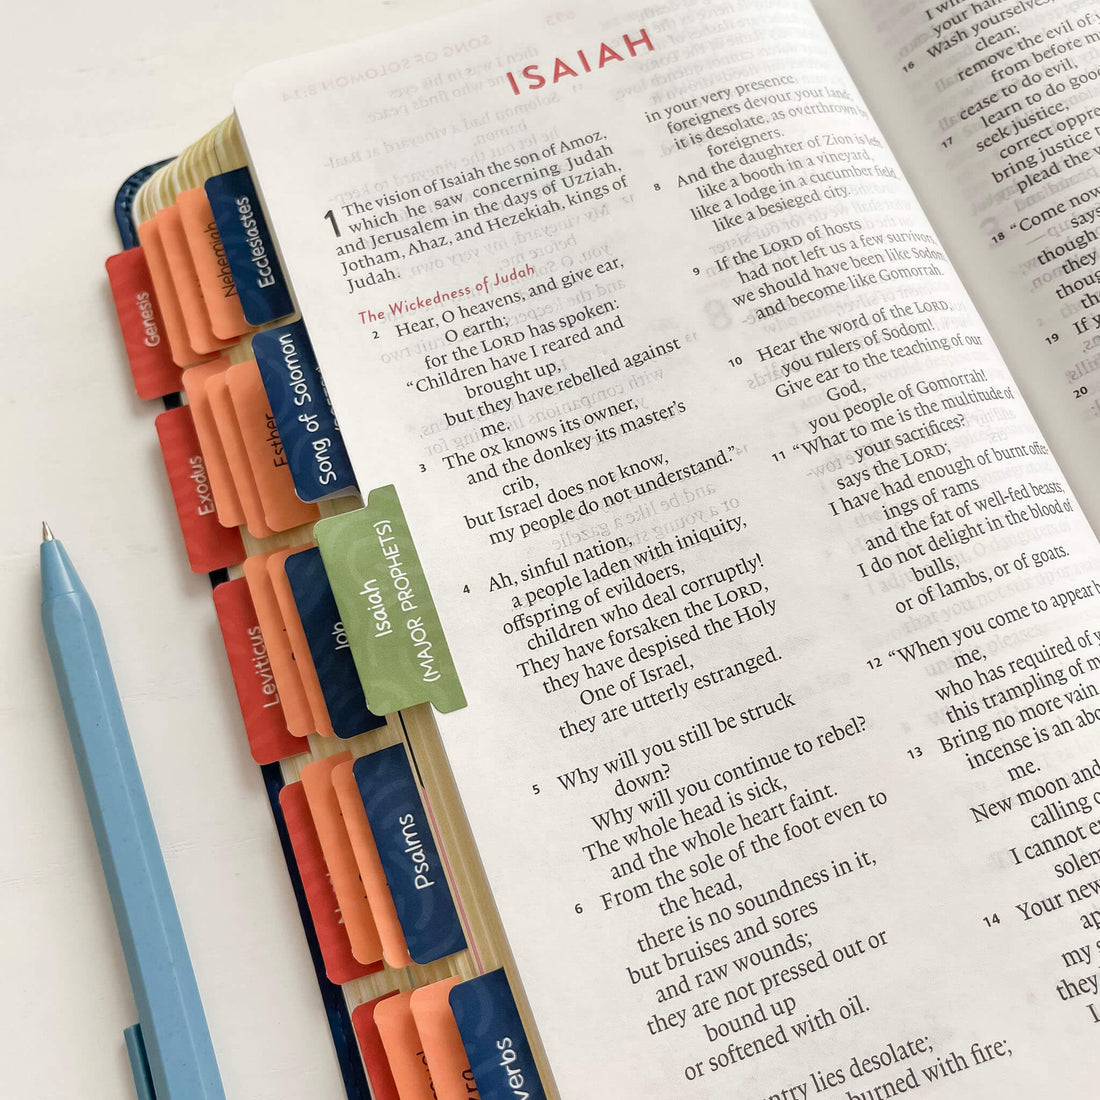 ISAIAH
1 The vision of Isaiah the son of Amoz,
which he saw concerning Judah
and Jerusalem in the days of Uzziah,
Jotham, Ahaz, and Hezekiah, kings of
Judah.
The Wickedness of Judah
2 Hear, O heavens, and give ear,
O earth;
for the LORD has spoken:
“Children have I reared and
brought up,
but they have rebelled against
me.
3 The ox knows its owner,
and the donkey its master’s
crib,
but Israel does not know,
my people do not understand.”
4 Ah, sinful nation,
a people laden with iniquity,
offspring of evildoers,
children who deal corruptly!
They have forsaken the LORD,
they have despised the Holy
One of Israel,
they are utterly estranged.
5 Why will you still be struck
down?
Why will you continue to rebel?
The whole head is sick,
and the whole heart faint.
6 From the sole of the foot even to
the head,
there is no soundness in it,
but bruises and sores
and raw wounds;
they are not pressed out or
bound up
or softened with oil.
lies desolate;
burned with fire;
in your very presence
foreigners devour your land;
it is desolate, as overthrown by
foreigners.
8 And the daughter of Zion is left
like a booth in a vineyard,
like a lodge in a cucumber field,
like a besieged city.
9 If the LORD of hosts
had not left us a few survivors,
we should have been like Sodom,
and become like Gomorrah.
10 Hear the word of the LORD,
you rulers of Sodom!
Give ear to the teaching of our
God,
you people of Gomorrah!
11 “What to me is the multitude of
your sacrifices?
says the LORD;
I have had enough of burnt offer-
ings of rams
and the fat of well-fed beasts;
I do not delight in the blood of
bulls,
or of lambs, or of goats.
12 “When you come to appear
me,
who has required of
this trampling of
13 Bring no more vain
incense is an
me.
New moon and
calling
I cannot
14 Your new
my
they
I
I
your
Wash yourselves;
clean;
16 remove the evil of
from before
cease to do evil,
17 learn to do good;
seek justice,
correct
bring justice
plead the
18 “Come now,
says
though
they
though
they
19 If
20
Genesis
Exodus
Leviticus
Nehemiah
Esther
Job
Ecclesiastes
Song of Solomon
Psalms
Isaiah
(MAJOR PROPHETS)